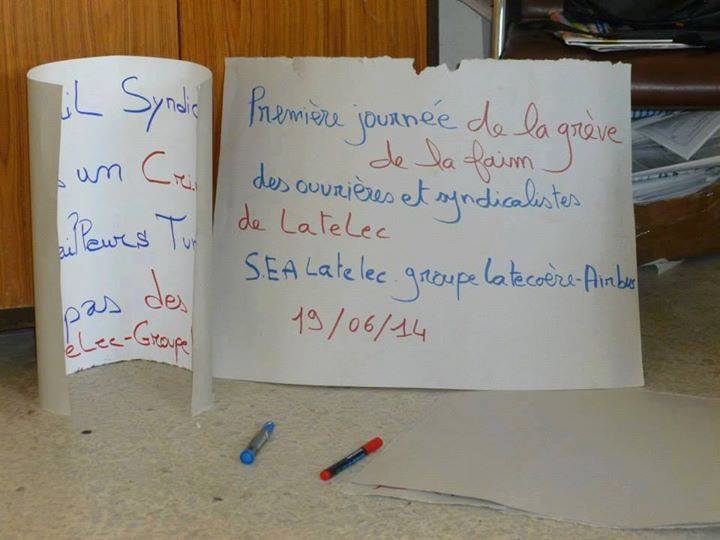 Syndic
un Cri
Tun
pas des
eLec-Groupe
Première journée de la grève
de la faim
des ouvrières et syndicalistes
de LateLec
S.E.A Latelec. groupe Latecoère-Airbus
19/06/14